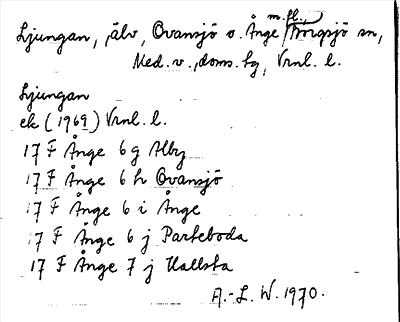 Ljungan, älv, Ovansjö o. Ånge m.fl., Borgsjö sn,
Med. v. doms. hg, Vrnl. l.
Ljungan
ek (1969) Vrnl. l.
17 F Ånge 6 g Alby
17 F Ånge 6 h Ovansjö
17 F Ånge 6 i Ånge
17 F Ånge 6 j Parteboda
17 F Ånge 7 j Hallsta
A.-L. W. 1970.